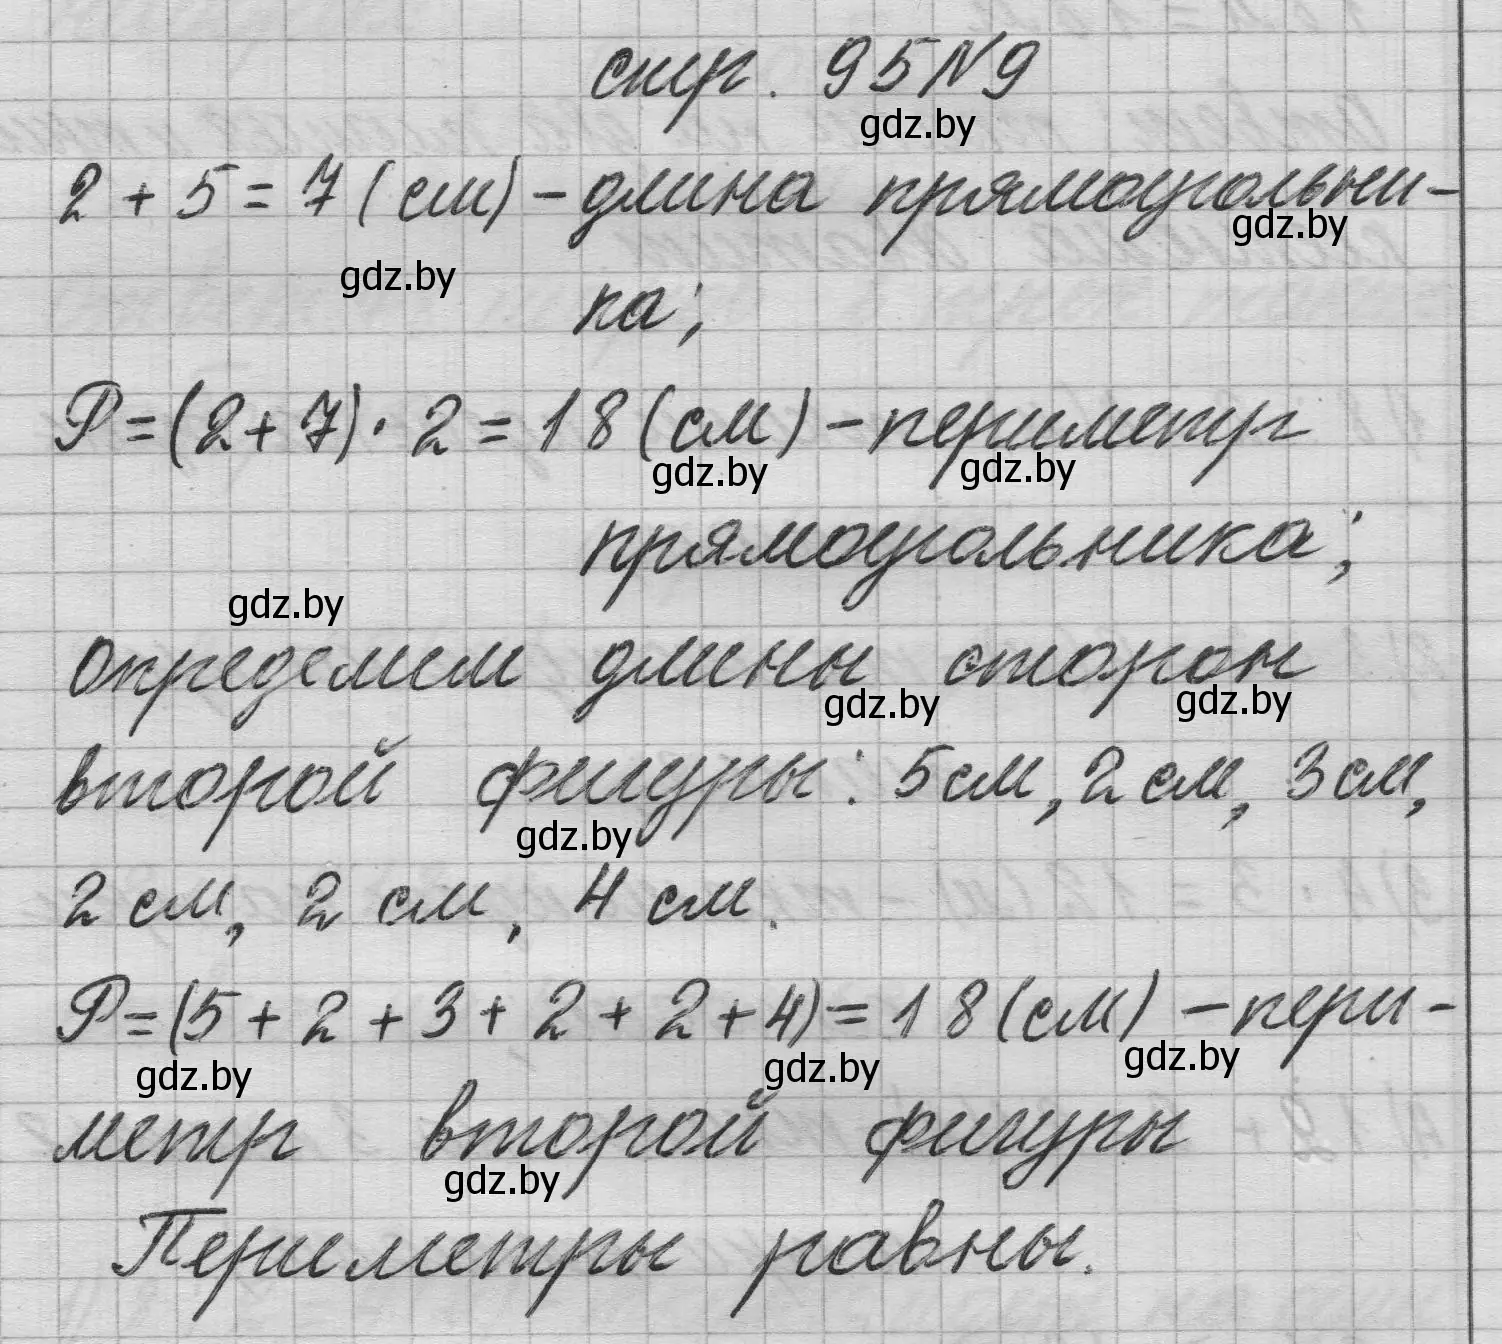 стр. 95 N 9
gdz.by
2 + 5 = 7 (см) – длина прямоугольни-
gdz.by
gdz.by
ка;
P = (2 + 7) · 2 = 18 (см) – периметр
gdz.by gdz.by
прямоугольника;
gdz.by
Определим длины сторон
gdz.by gdz.by
второй фигуры: 5 см, 2 см, 3 см,
gdz.by
2 см, 2 см, 4 см.
P = (5 + 2 + 3 + 2 + 2 + 4) = 18 (см) – пери-
gdz.by gdz.by gdz.by
метр второй фигуры
gdz.by
Периметры равны.